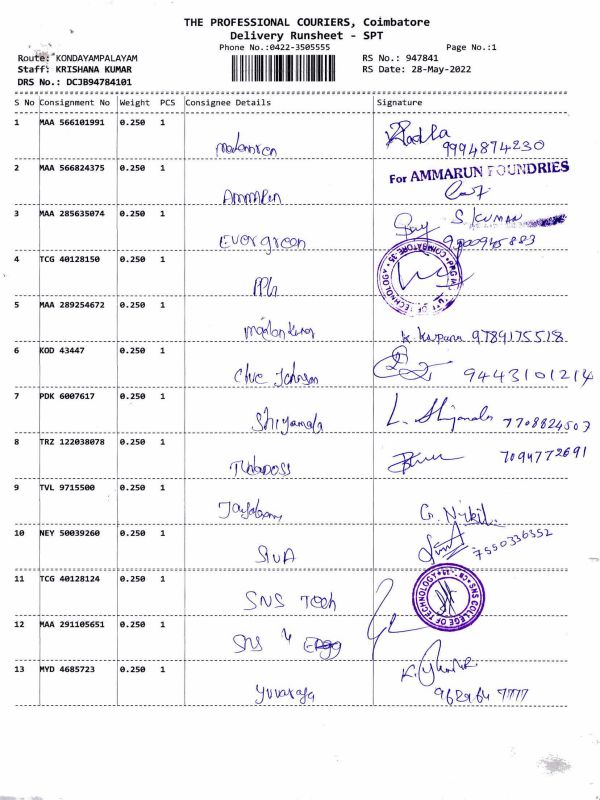 THE PROFESSIONAL COURIERS, Coimbatore
Delivery Runsheet - SPT
Phone No.:0422-3505555
Page No.:1
Route: KONDAYAMPALAYAM
RS No.: 947841
Staff: KRISHANA KUMAR
RS Date: 28-May-2022
DRS No.: DCJB94784101
S No Consignment No Weight PCS Consignee Details Signature
1 MAA 566101991 0.250 1 Radha
9994874230
2 MAA 566824375 0.250 1 For AMMARUN FOUNDRIES
3 MAA 285635074 0.250 1 Evergreen S. KUMAR
4 TCG 40128150 0.250 1
5 MAA 289254672 0.250 1 9789175518
6 KOD 43447 0.250 1 Johnson 9443101214
7 PDK 6007617 0.250 1 Shiyamala L. 7708824503
8 TRZ 122038078 0.250 1 7094772691
9 TVL 9715500 0.250 1 G. Nikil
10 NEY 50039260 0.250 1 SIVA 7550336352
11 TCG 40128124 0.250 1 SNS Tech SNS COLLEGE OF TECHNOLOGY
12 MAA 291105651 0.250 1 SNS
13 MYD 4685723 0.250 1 Yuvaraja